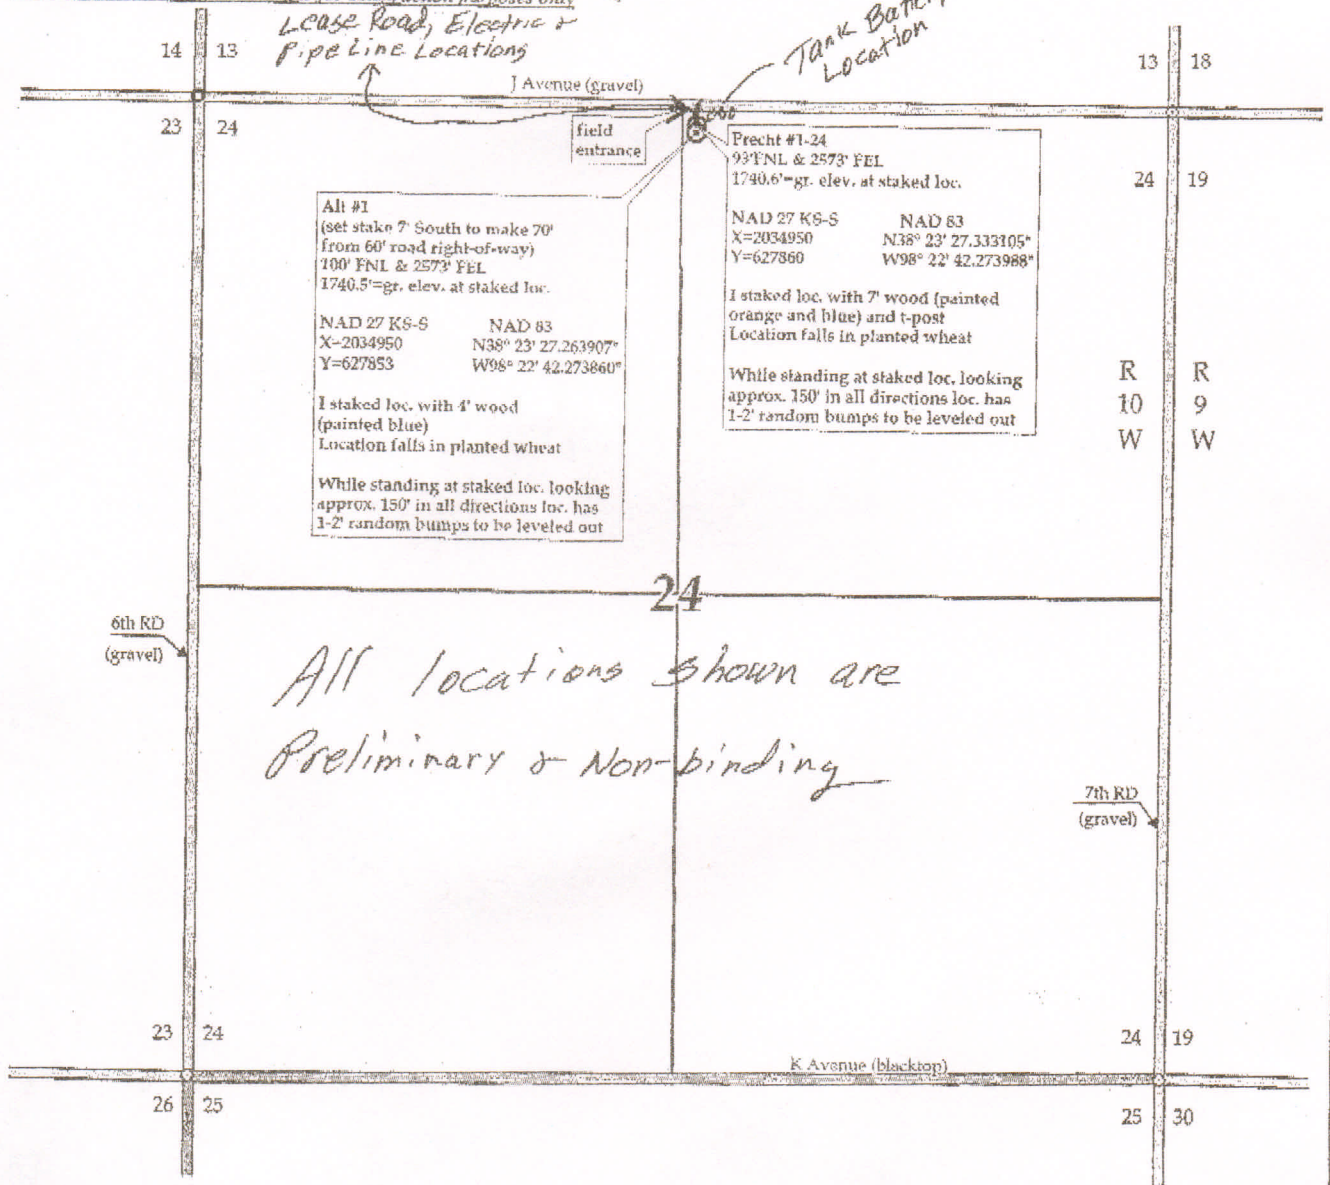 purposes only
Lease Road, Electric &
Pipe Line Locations
Tank Battery
Location
14 13
13 18
J Avenue (gravel)
23 24
field
entrance
24 19
Precht #1-24
93'FNL & 2573' FEL
1740.6'=gr. elev. at staked loc.
NAD 27 KS-S NAD 83
X=2034950 N38° 23' 27.333105"
Y=627860 W98° 22' 42.273988"
I staked loc. with 7' wood (painted
orange and blue) and t-post
Location falls in planted wheat
While standing at staked loc. looking
approx. 150' in all directions loc. has
1-2' random bumps to be leveled out
Alt #1
(set stake 7' South to make 70'
from 60' road right-of-way)
100' FNL & 2573' FEL
1740.5'=gr. elev. at staked loc.
NAD 27 KS-S NAD 83
X=2034950 N38° 23' 27.263907"
Y=627853 W98° 22' 42.273860"
I staked loc. with 4' wood
(painted blue)
Location falls in planted wheat
While standing at staked loc. looking
approx. 150' in all directions loc. has
1-2' random bumps to be leveled out
R R
10 9
W W
24
6th RD
(gravel)
All locations shown are
Preliminary & Non-binding
7th RD
(gravel)
23 24
24 19
K Avenue (blacktop)
26 25
25 30